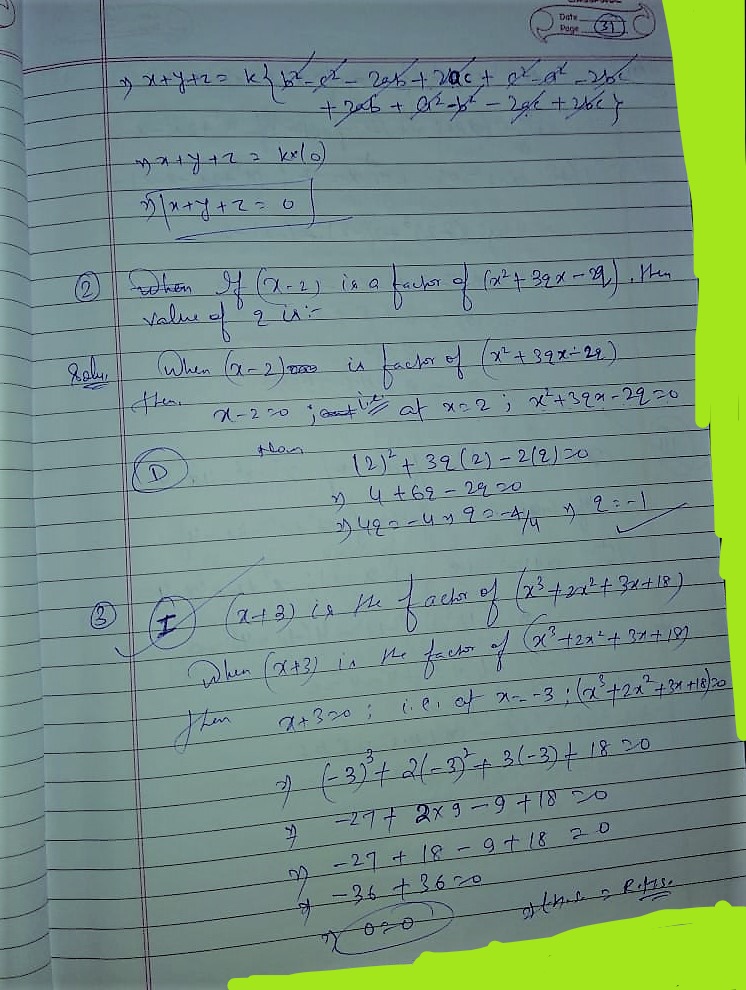 Date
Page 31
⇒ x+y+z = k{b²-c²-2ab+2ac+c²-a²-2bc
+2ab+a²-b²-2ac+2bc}
⇒ x+y+z = k×(0)
⇒ x+y+z = 0
② When If (x-2) is a factor of (x²+3qx-2q), then
value of q is:-
Solu. When (x-2) is factor of (x²+3qx-2q)
then. x-2=0 ; i.e. at x=2 ; x²+3qx-2q=0
then
D (2)²+3q(2)-2(q)=0
⇒ 4+6q-2q=0
⇒ 4q=-4 ⇒ q=-4/4 ⇒ q=-1
③ I (x+3) is the factor of (x³+2x²+3x+18)
When (x+3) is the factor of (x³+2x²+3x+18)
then x+3=0 ; i.e. at x=-3 ; (x³+2x²+3x+18)=0
⇒ (-3)³+2(-3)²+3(-3)+18=0
⇒ -27+2×9-9+18=0
⇒ -27+18-9+18=0
⇒ -36+36=0
⇒ 0=0 ⇒ L.H.S. = R.H.S.